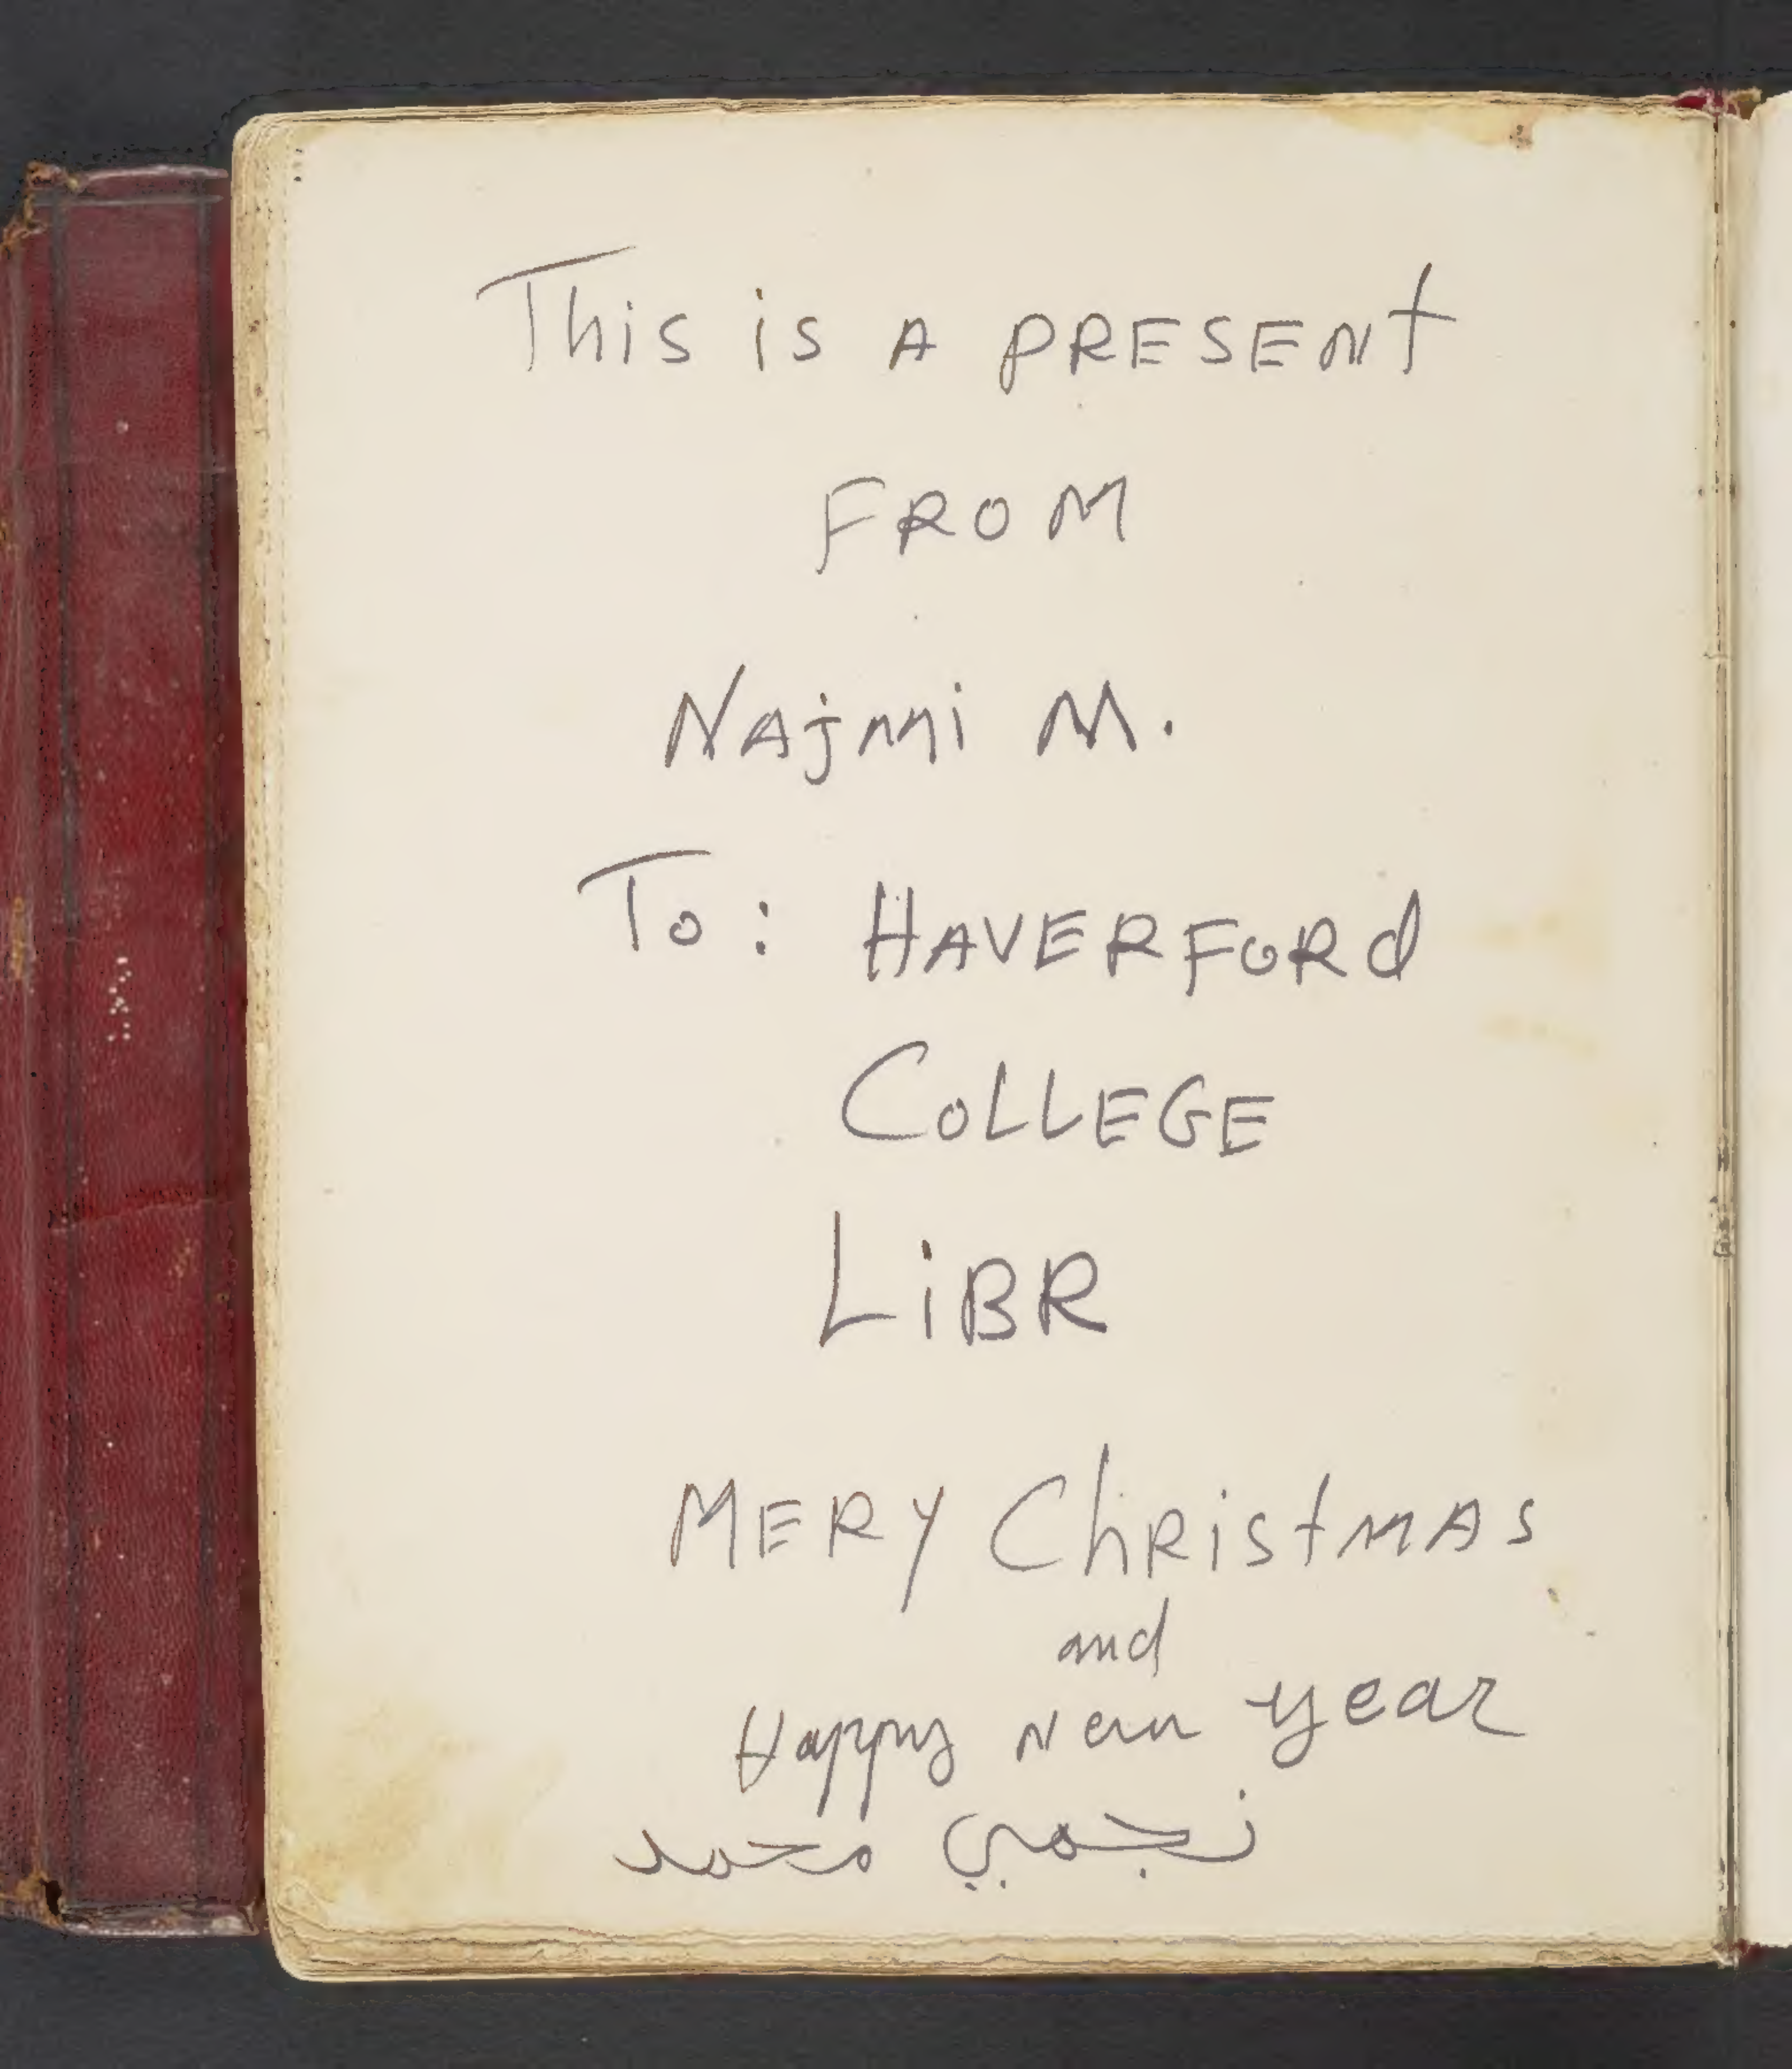 This is A PRESENt
FROM
NAjmi M.
To: HAVERFORd
COLLEGE
LiBR
MERY ChRistMAS
and
Happy New year
نجمي محمد